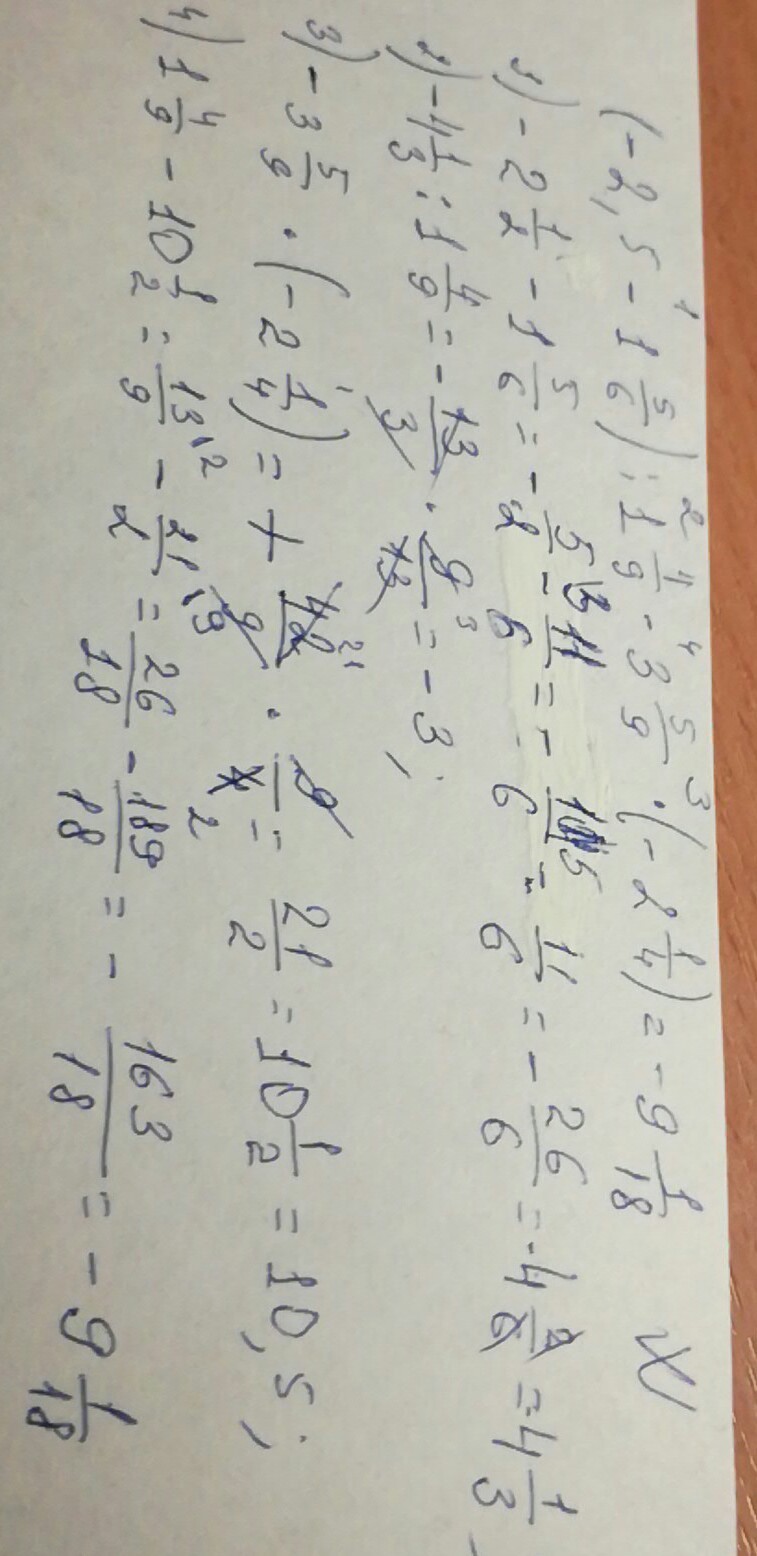 (-2,5 - 1 5/6) : 1 4/9 - 3 5/9 · (-2 1/4) = -9 1/18
1) -2 1/2 - 1 5/6 = -5/2 - 11/6 = -15/6 - 11/6 = -26/6 = -4 2/6 = -4 1/3
2) -4 1/3 : 1 4/9 = -13/3 · 9/13 = -3;
3) -3 5/9 · (-2 1/4) = + 42/9 · 9/4 = 21/2 = 10 1/2 = 10,5;
4) 1 4/9 - 10 1/2 = 13/9 - 21/2 = 26/18 - 189/18 = - 163/18 = -9 1/18